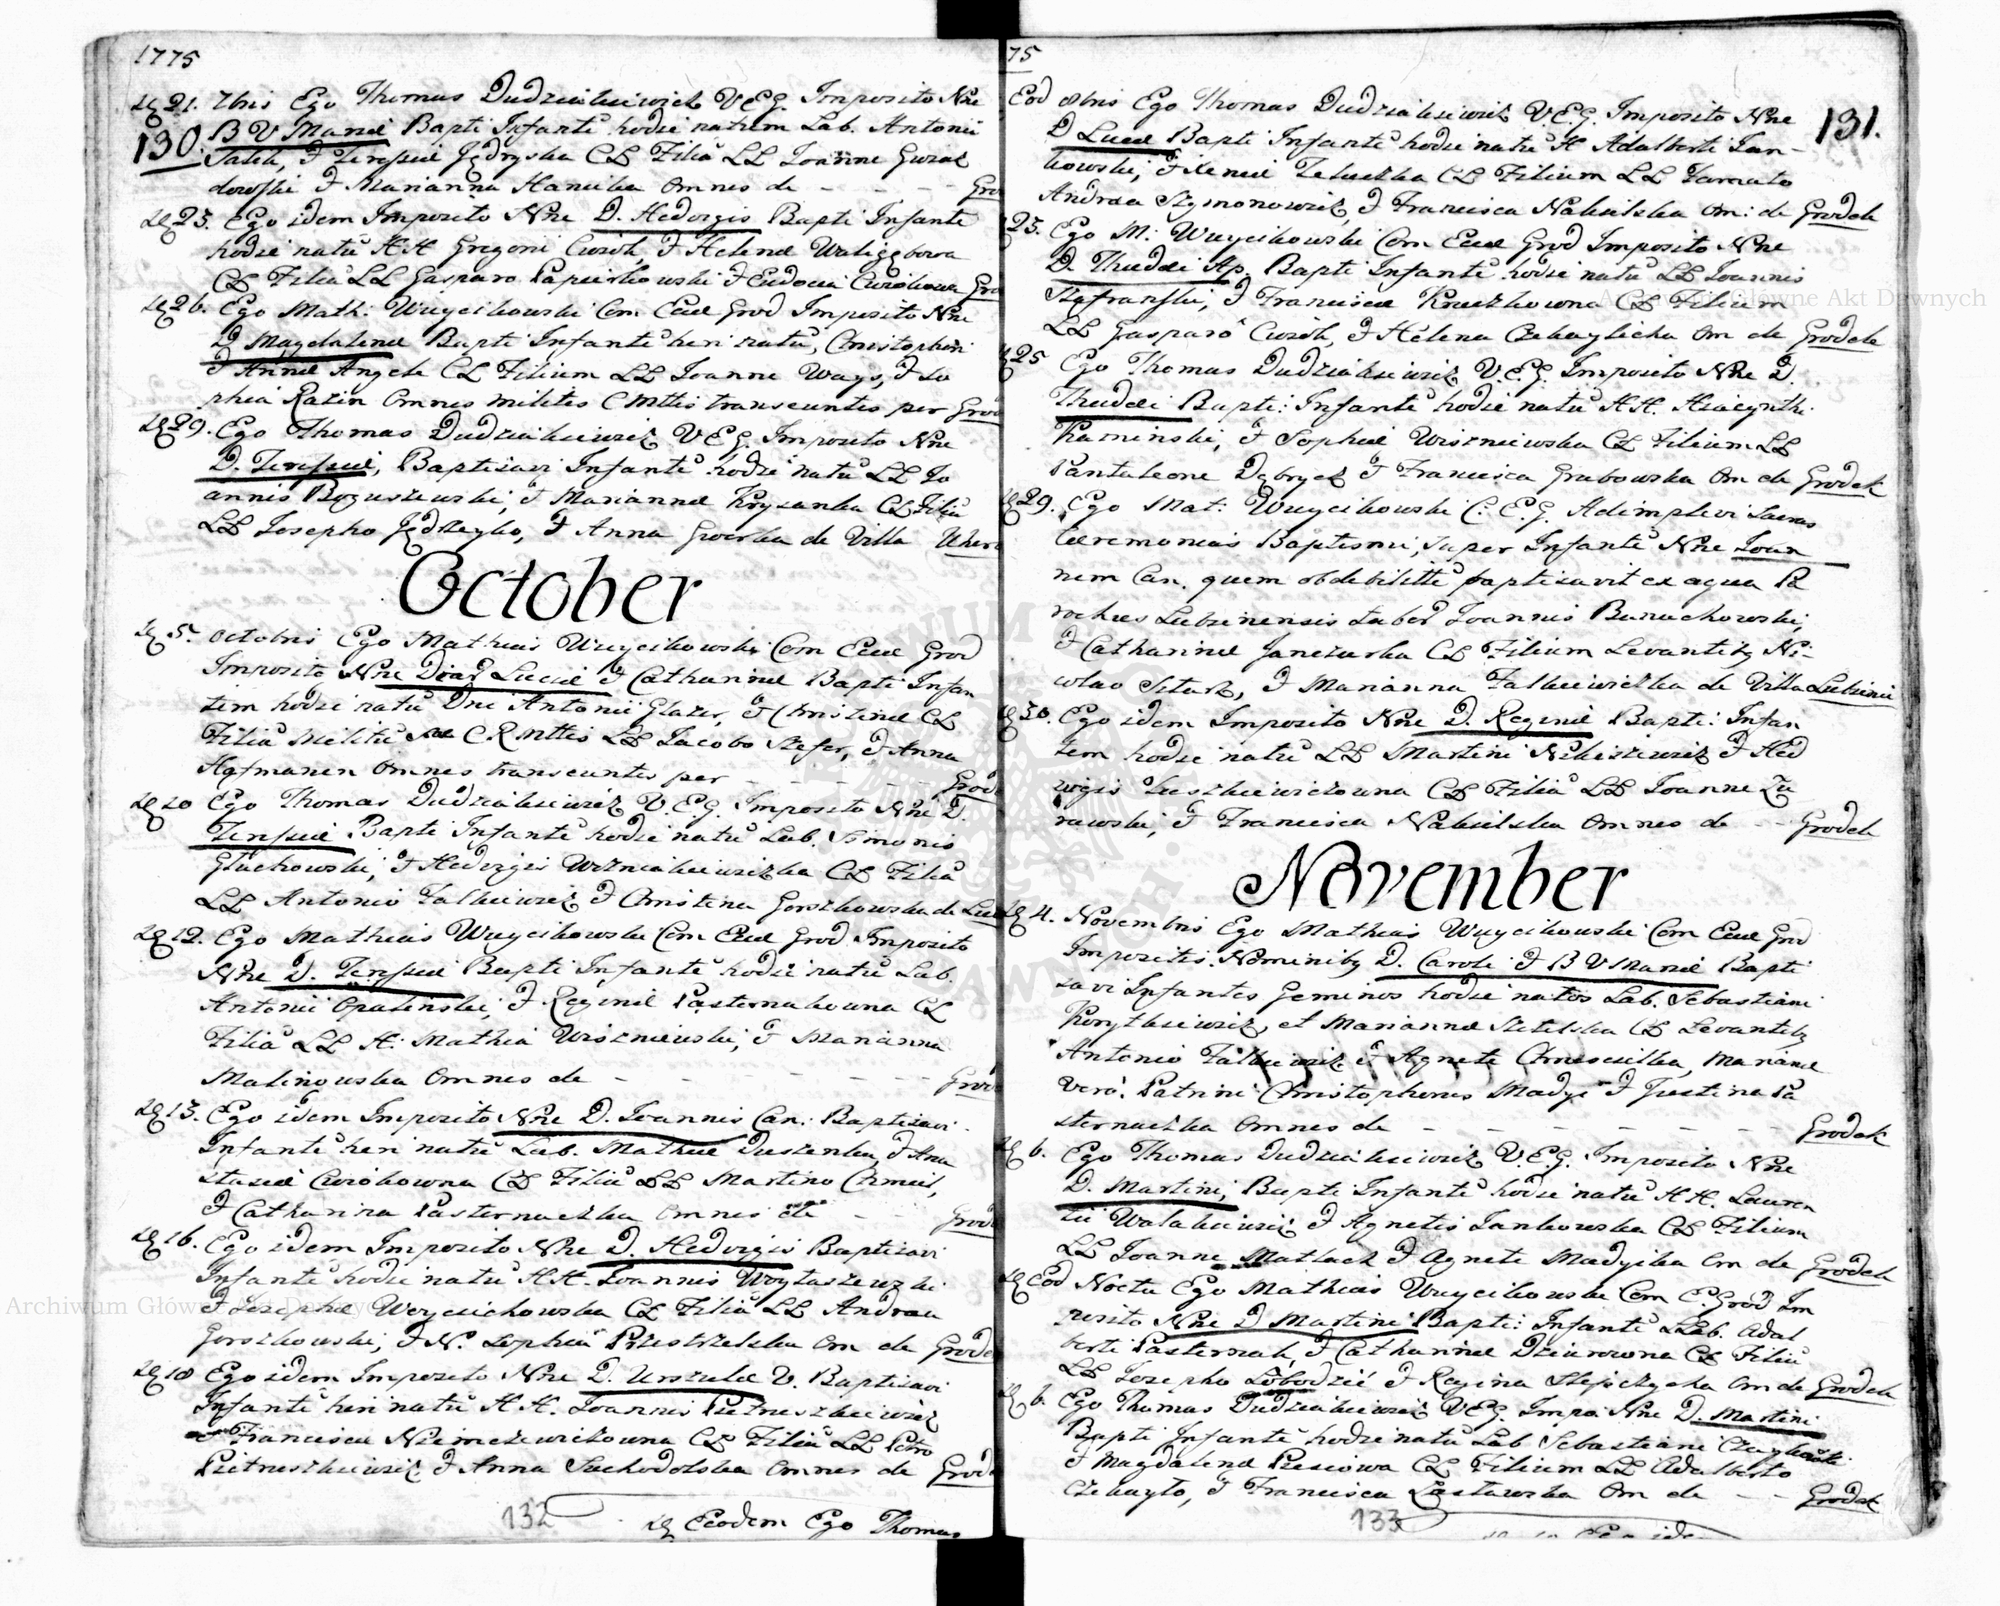 1775
21. 7bris Ego Thomas Dudziakiewicz V.E.G. Imposito Nne
130. B V Mariæ Bapti Infantē hodie natum Lab. Antonii
& Teressiæ Jędryska CL Filiā LL Joanne
& Marianna Hanicka Omnes de - - - Grod
23. Ego idem Imposito Nne D. Hedvigis Bapti Infantē
hodie natū HH Gregorii Cwiok, & Helenæ Waligębowa
CL Filiā LL Gasparo Papierkowski & Eudocia Cwiokowa Gro
26. Ego Math: Wuycikowski Com Eccl Grod Imposito Nne
D Magdalenæ Bapti Infantē heri natū, Christophori
& Annæ Angele CL Filium LL Joanne Ways, & So
phia Razin Omnes milites C Mttis transeuntes per Grod
29. Ego Thomas Dudziakiewicz V E G. Imposito Nne
D. Teressiæ, Baptisavi Infantē hodie natū LL Jo
annis Boguszewski, & Mariannæ Krysanka CL Filiā
LL Josepho Jędrzeyko, & Anna de Villa Uher
October
5. Octobris Ego Mathias Wuycikowski Com Eccl Grod
Imposito Nne Luciæ & Catharinæ Bapti Infan
tem hodie natū Dni Antonii Glazer, & Christinæ CL
Filiā Militū C R Mttis LL Jacobo Stefer, & Anna
Hofmanen Omnes transeuntes per - - - - Grod
10 Ego Thomas Dudziakiewicz V. E G. Imposito Nne D.
Teressiæ Bapti Infantē hodie natū Lab. Simonis
Głuchowski, & Hedvigis CL Filiā
LL Antonio Falkiewicz & Christina Gorzkowska de
12. Ego Mathias Wuycikowski Com Eccl Grod Imposito
Nne D. Teressiæ Bapti Infantē hodie natū Lab.
Antonii Opalenski, & Reginæ Pasternakowna CL
Filiā LL H: Mathia Wiszniewski, & Marianna
Malinowska Omnes de - - - - - Grod
13. Ego idem Imposito Nne D. Joannis Can: Baptisavi
Infantē heri natū Lab. Mathiæ & Ana
stasiæ Cwiokowna CL Filiū LL Martino Chmiel,
& Catharina Pasternaczka Omnes de - - Grod
16. Ego idem Imposito Nne D. Hedvigis Baptisavi
Infantē hodie natū HH. Joannis Woytaszewski
& Josephæ Woyciechowska CL Filiā LL Andrea
Gorzkowski, & N. Sophia Przestrzelska Om de Grode
18 Ego idem Imposito Nne D. Urszulæ V. Baptisavi
Infantē heri natū H H. Joannis Pietruszkiewicz
& Francisca Niemczewiczowna CL Filiā LL Petro
Pietruszkiewicz & Anna Suchodolska Omnes de Grod
132
Eodem Ego Thomas
75
Eod 8bris Ego Thomas Dudziakiewicz V.E.G. Imposito Nne 131.
D Lucæ Bapti Infantē hodie natū H Adalberti Jan-
kowski, & Xeniæ CL Filium LL Famato
Andrea Szymonowicz, & Francisca Nakielska Om: de Grodek
23. Ego M: Wuycikowski Com Eccl Grod Imposito Nne
D. Thaddei Ap. Bapti Infantē hodie natū LL Joannis
Szafranski, & Franciscæ Kruczkowna CL Filium
LL Gasparo Cwiok, & Helena Om de Grodek
25 Ego Thomas Dudziakiewicz V.E.G. Imposito Nne D.
Thaddei Bapti: Infantē hodie natū HH. Hiacynthi
Kaminski, & Sophiæ Wiszniewska CL Filium LL
Pantaleone & Francisca Grabowska Om de Grodek
29. Ego Mat: Wuycikowski C. E.G. Adimplevi Sacras
Cæremonias Baptismi, super Infantē Nne Joan
nem Can. quem ob debilittē baptisavit ex aqua Pa
rochus Lubinensis Labor Joannis Bunachowski,
& Catharinæ Janczurka CL Filium Levantibꝯ Ni-
colao & Marianna Falkiewiczka de Villa
30. Ego idem Imposito Nne D. Reginæ Bapti: Infan
tem hodie natū LL Martini & Hed
vigis Leszkiewiczowna CL Filiā LL Joanne Zu
rawski, & Francisca Nakielska Omnes de - - Grodek
November
4. Novembris Ego Mathias Wuycikowski Com Eccl Grod
Impositis Nominibꝯ D. Caroli & B V Mariæ Bapti
savi Infantes Geminos hodie natos Lab. Sebastiani
Korytkiewicz, et Mariannæ CL Levantibꝯ
Antonio Falkiewicz & Agnete Chmieeilka, Mariæ
vero Patrini Christophorus Madyś & Justina Pa
sternaczka Omnes de - - - - - - - Grodek
6. Ego Thomas Dudziakiewicz V.E.G. Imposito Nne
D. Martini, Bapti Infantē hodie natū H.H. Lauren
tii Walakiewicz & Agnetis Jankowska CL Filium
LL Joanne Matlach & Agnete Madyska Om de Grodek
Eod Noctu Ego Mathias Wuycikowski Com E. Grod Im
posito Nne D Martini Bapti: Infantē LLab. Adal
berti Pasternak, & Catharinæ Dziurowna CL Filiū
LL Josepho Łobodzić & Regina Om de Grodek
6. Ego Thomas Dudziakiewicz V E G. Impo: Nne D. Martini
Bapti Infantē hodie natū Lab Sebastiani
& Magdalenæ Presiowa CL Filium LL Adalberto
Czekayło, & Francisca Om de - - Grodek
133
Ego idem
Archiwum Główne Akt Dawnych
Archiwum Główne Akt Dawnych